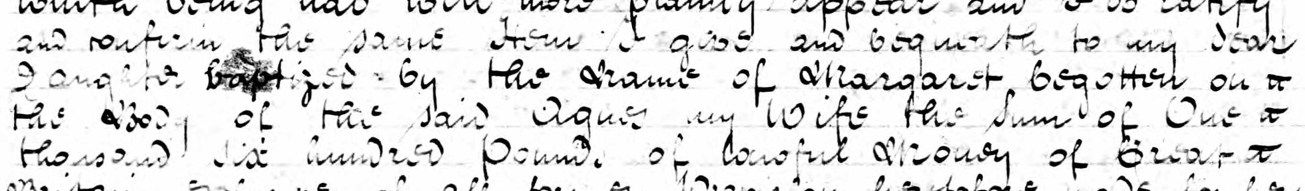 being had will more plainly appear and I do ratify
and confirm the same Item I give and bequeath to my dear
Daughter baptized by the Name of Margaret begotten on
the Body of the said Agnes my Wife the Sum of One
thousand six hundred Pounds of lawful Money of Great